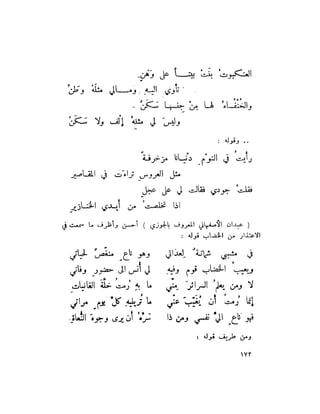 العنكبوتُ بنَتْ بيتــــاً على وَهَنٍ
تأوي اليــهِ ومــــالي مثلَهُ وَطَنُ
والخُنْفُســاءُ لهــا مِنْ جِنْسِهــا سَكَنٌ
وليسَ لي مثلِهِ إِلْف ولا سَكَنُ
.. وقوله :
رأيتُ في النومِ دنيــانا مزخرفــةً
مثل العروسِ تراءَت في المقــاصير
فقلتُ جودي فقالت لي على عجلٍ
اذا تخلصتُ من أيــدي الخنــازير
( عبدان الأصفهاني المعروف بالجوزي ) أحسن وأظرف ما سمعت في
الاعتذار من الخضاب قوله :
في مشيبي شماتــةٌ لِعِداتي وهو ناعٍ منغّصٌ لحياتي
ويعيبُ الخضابَ قوم وفيهِ لي أُنس الى حضورِ وفاتي
لا ومن يعلمُ السرائرَ مِنّي ما بِهِ رُمتُ خلَّةَ الغانياتِ
إنما رُمتُ أن يُغَيِّبَ عنّي ما تُريَنيهِ كلّ يومٍ مراتي
فهو ناعٍ اليَّ نفسي ومن ذا سرَّهُ أن يرى وجوهَ النُّعاةِ
ومن طريف قوله :
١٧٢